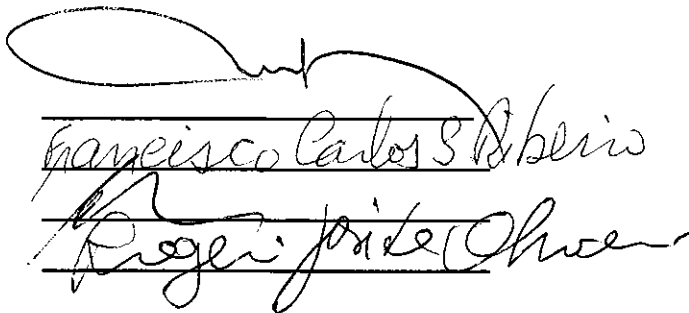 Francisco Carlos S Ribeiro
Rogério José de Oliveira